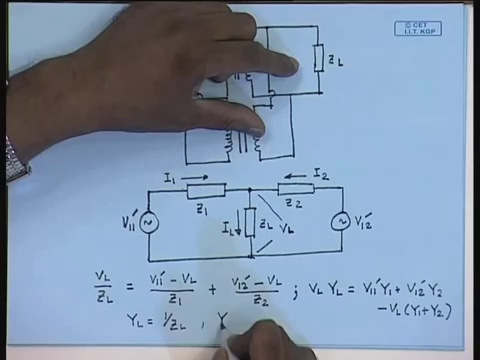 © CET
I.I.T. KGP
ZL
I1
I2
Z1
Z2
V11'
IL
ZL
VL
V12'
VL/ZL = (V11' - VL)/Z1 + (V12' - VL)/Z2 ; VL YL = V11' Y1 + V12' Y2
- VL (Y1 + Y2)
YL = 1/ZL , Y